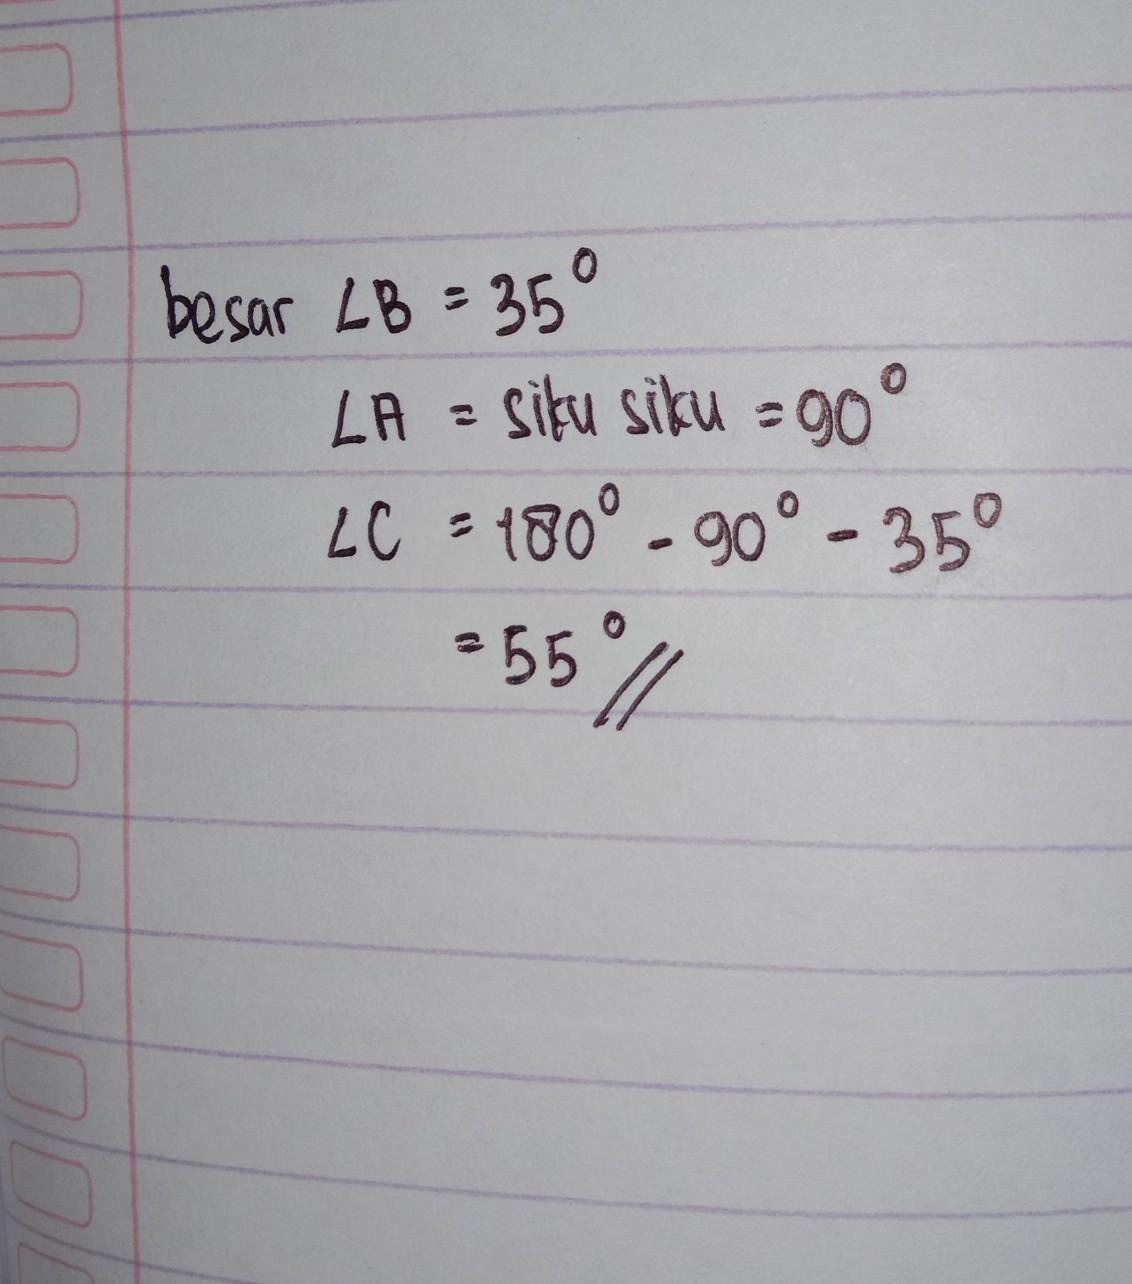 besar ∠B = 35°
∠A = siku siku = 90°
∠C = 180° - 90° - 35°
= 55° //